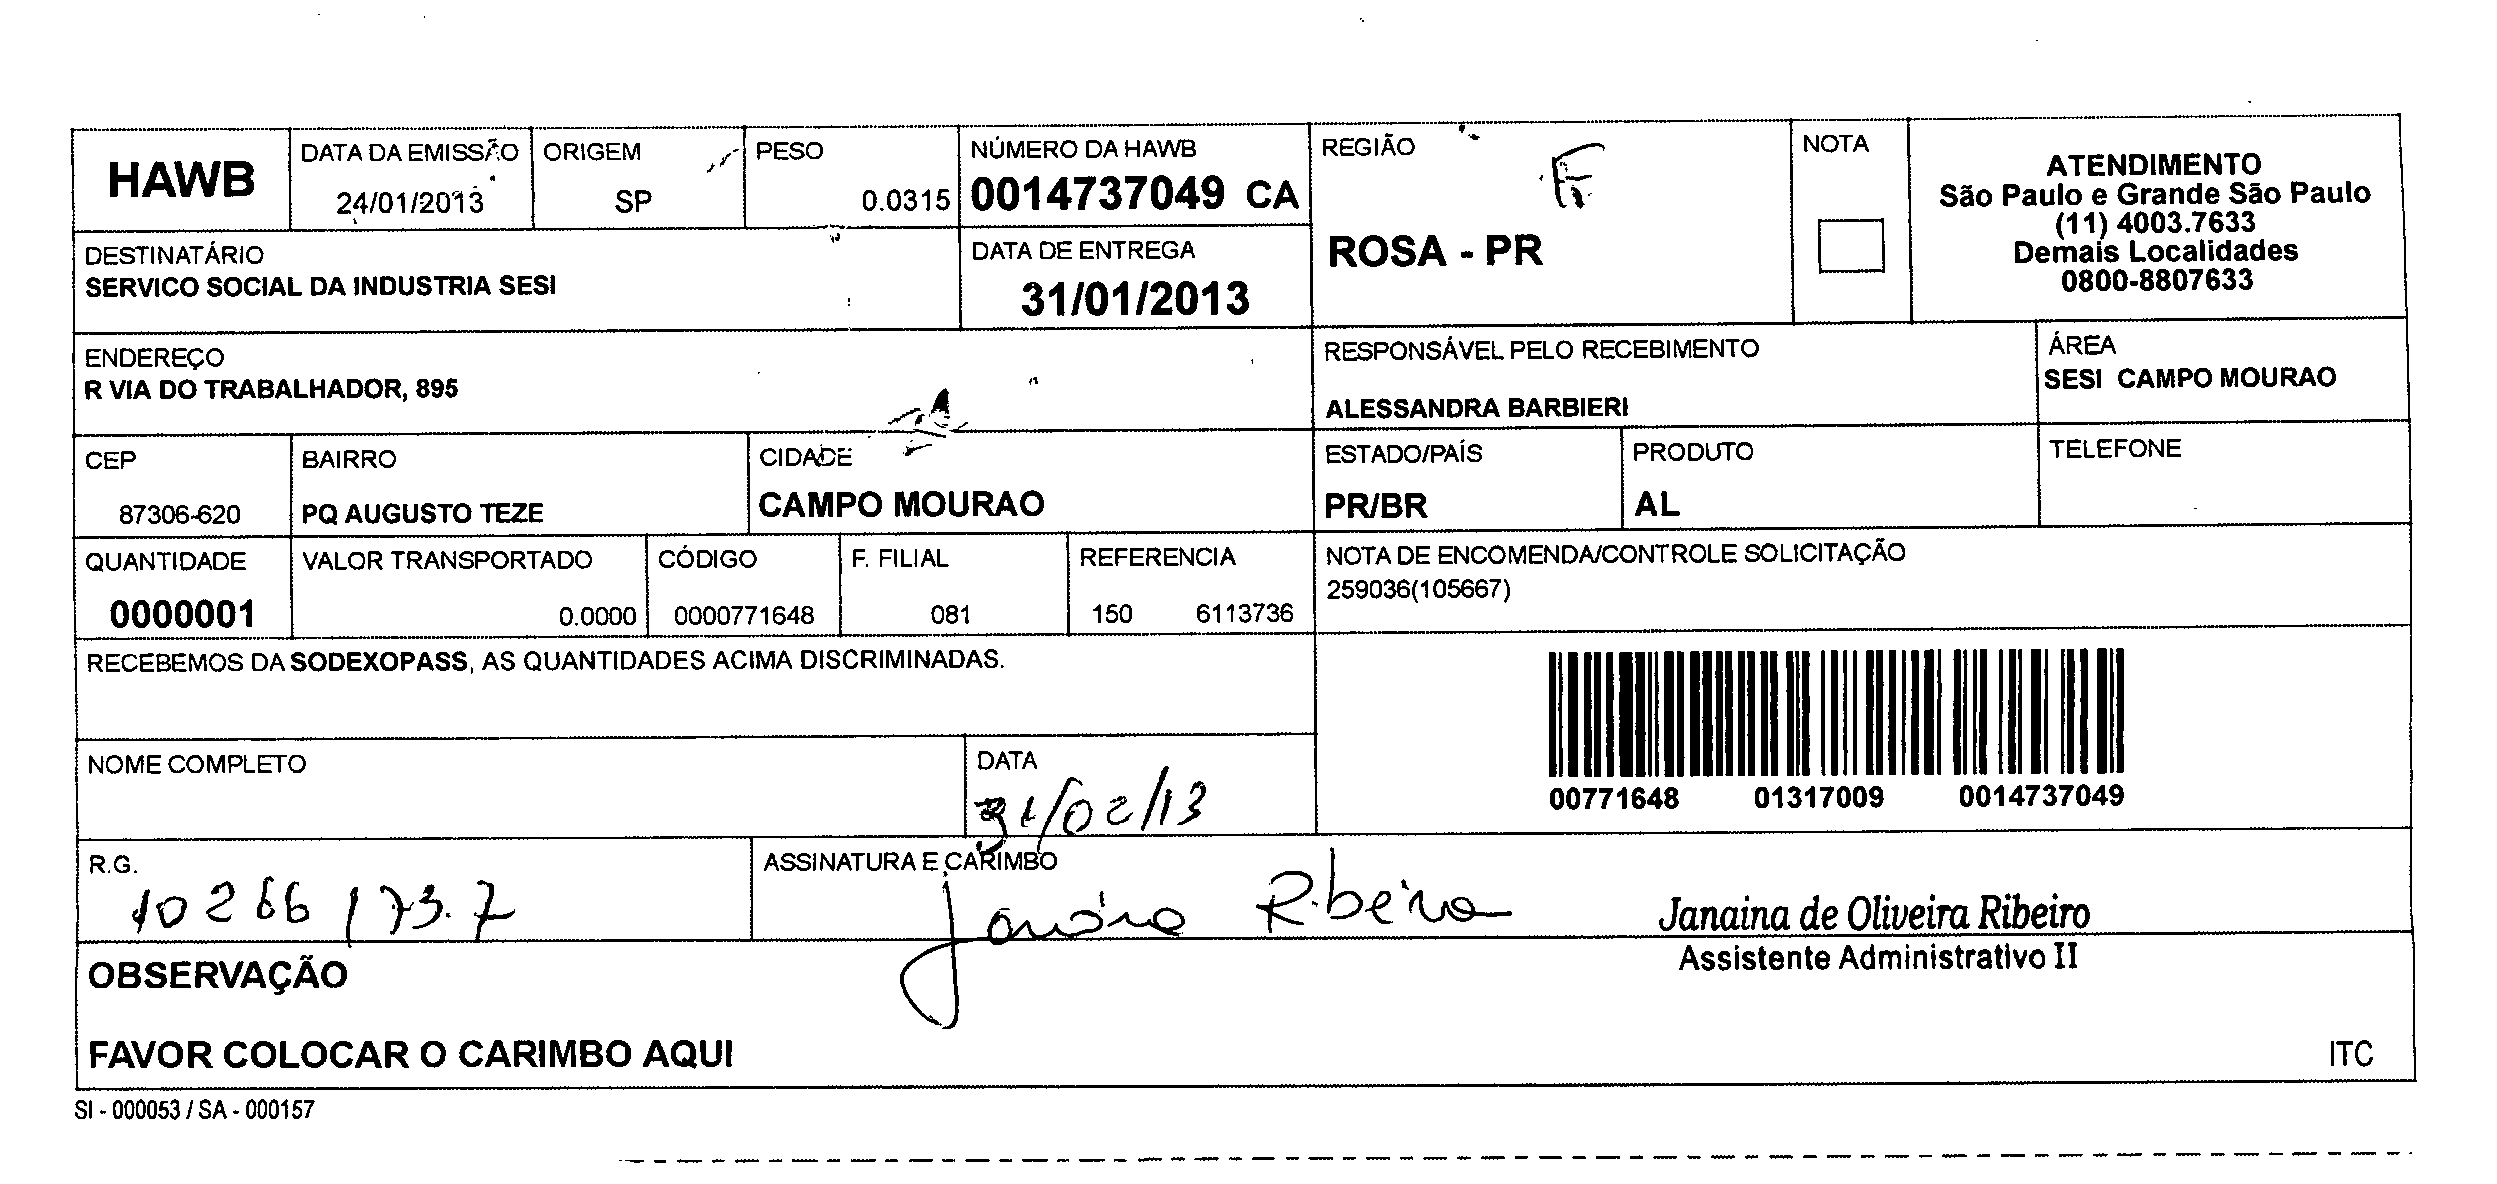 HAWB
DATA DA EMISSÃO
24/01/2013
ORIGEM
SP
PESO
0.0315
NÚMERO DA HAWB
0014737049 CA
REGIÃO
F
ROSA - PR
NOTA
ATENDIMENTO
São Paulo e Grande São Paulo
(11) 4003.7633
Demais Localidades
0800-8807633
DESTINATÁRIO
SERVICO SOCIAL DA INDUSTRIA SESI
DATA DE ENTREGA
31/01/2013
ENDEREÇO
R VIA DO TRABALHADOR, 895
RESPONSÁVEL PELO RECEBIMENTO
ALESSANDRA BARBIERI
ÁREA
SESI CAMPO MOURAO
CEP
87306-620
BAIRRO
PQ AUGUSTO TEZE
CIDADE
CAMPO MOURAO
ESTADO/PAÍS
PR/BR
PRODUTO
AL
TELEFONE
QUANTIDADE
0000001
VALOR TRANSPORTADO
0.0000
CÓDIGO
0000771648
F. FILIAL
081
REFERENCIA
150 6113736
NOTA DE ENCOMENDA/CONTROLE SOLICITAÇÃO
259036(105667)
RECEBEMOS DA SODEXOPASS, AS QUANTIDADES ACIMA DISCRIMINADAS.
00771648 01317009 0014737049
NOME COMPLETO
DATA
31/02/13
R.G.
10266173.7
ASSINATURA E CARIMBO
Janaina Ribeiro
Janaina de Oliveira Ribeiro
Assistente Administrativo II
OBSERVAÇÃO
FAVOR COLOCAR O CARIMBO AQUI
ITC
SI - 000053 / SA - 000157